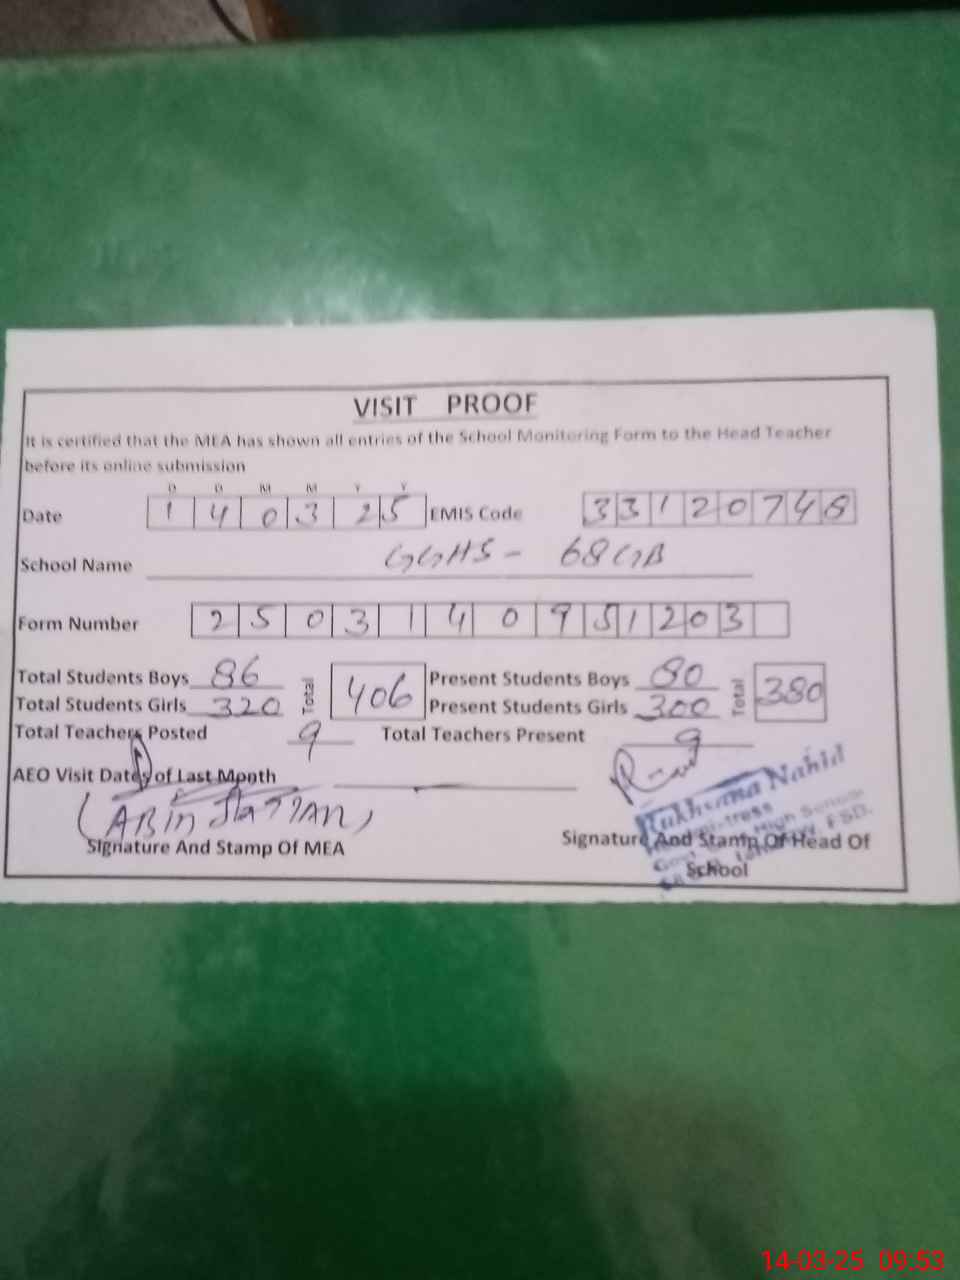 VISIT PROOF
It is certified that the MEA has shown all entries of the School Monitoring Form to the Head Teacher
before its online submission
D D M M Y Y
Date 1 4 0 3 2 5 EMIS Code 3 3 1 2 0 7 4 8
School Name GGHS - 68 GB
Form Number 2 5 0 3 1 4 0 9 5 1 2 0 3
Total Students Boys 86 Total 406 Present Students Boys 80 Total 380
Total Students Girls 320 Present Students Girls 300
Total Teachers Posted 9 Total Teachers Present 9
AEO Visit Dates of Last Month
Signature And Stamp Of MEA
Rukhsana Nahid
High School
FSD.
Signature And Stamp Of Head Of
School
14-03-25 09:53